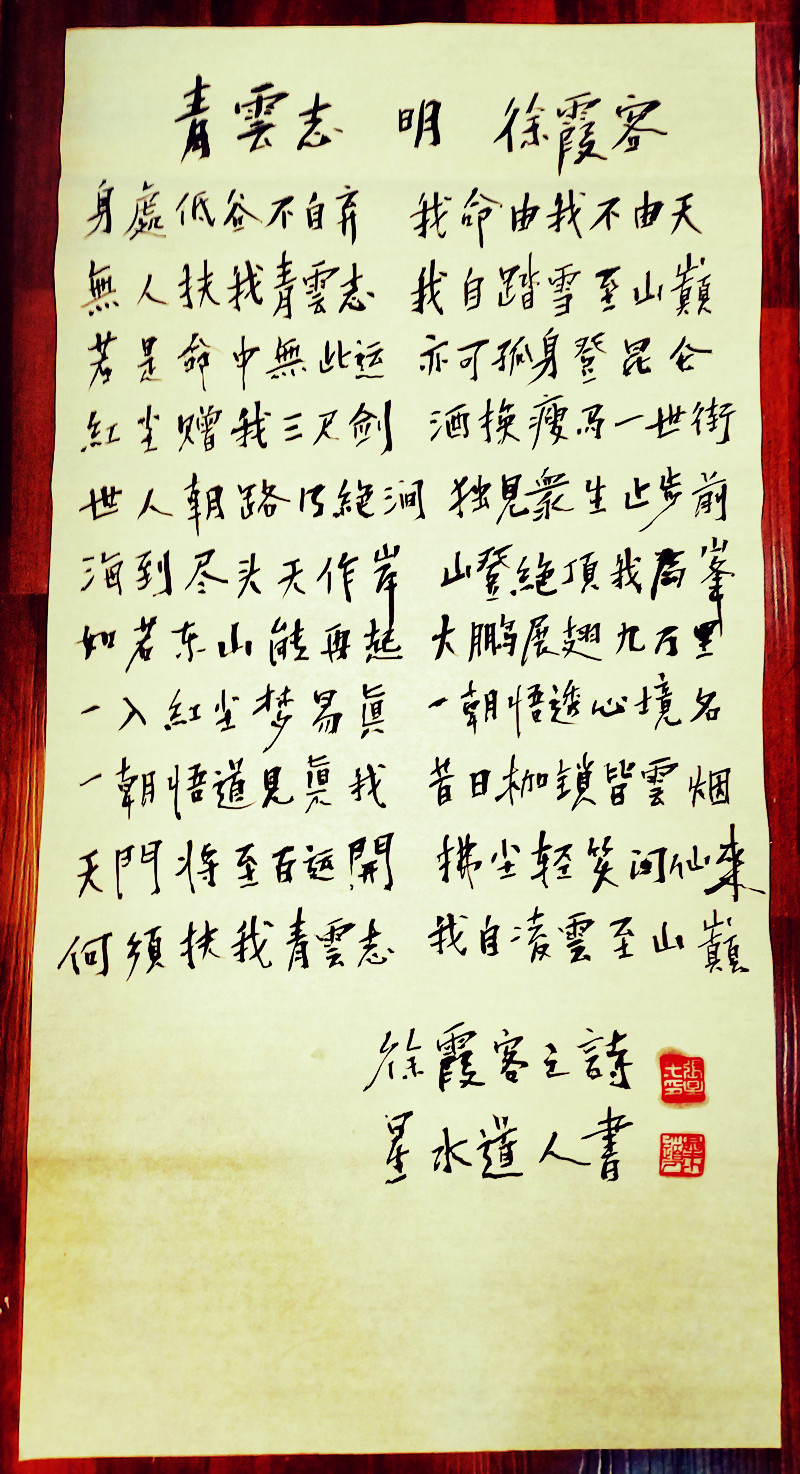 青雲志 明 徐霞客
身處低谷不自弃 我命由我不由天
無人扶我青雲志 我自踏雪至山巔
若是命中無此运 亦可孤身登昆仑
紅尘赠我三尺劍 酒换瘦马一世街
世人朝路 絶涧 独見衆生止步前
海到尽头天作岸 山登絶頂我為峯
如若东山能再起 大鹏展翅九万里
一入紅尘梦易真 一朝悟透心境名
一朝悟道見真我 昔日枷鎖皆雲烟
天門将至百运開 拂尘轻笑问仙来
何須扶我青雲志 我自凌雲至山巔
徐霞客之詩
星水道人書